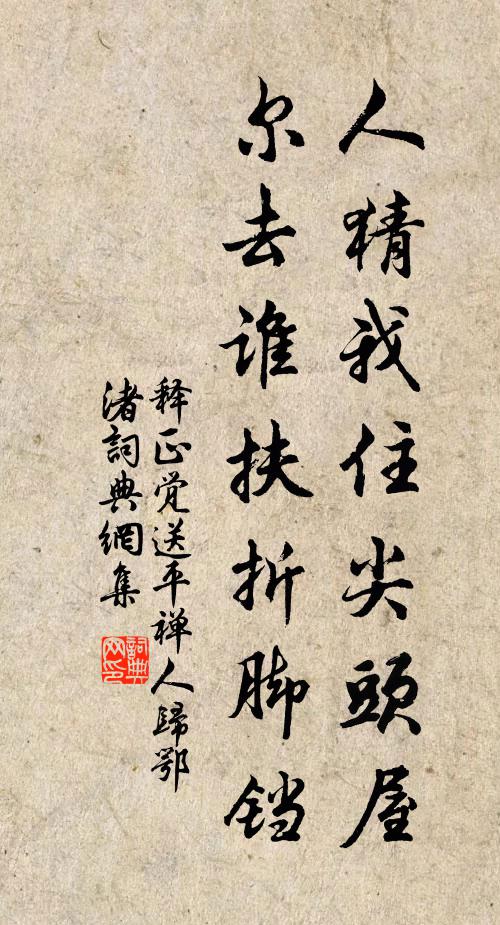 人猜我住尖頭屋
尔去谁扶折脚铛
释正觉送平禅人歸鄂
渚詞典網集
詞典
网印